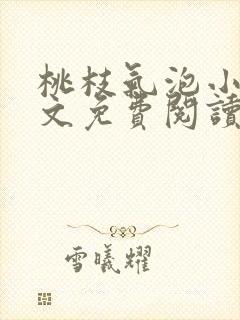 桃枝氣泡小
文免費閱讀
雪曦耀